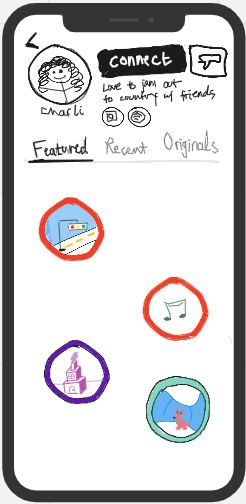 connect
Love to jam out
to country w/ friends
charli
Featured Recent Originals